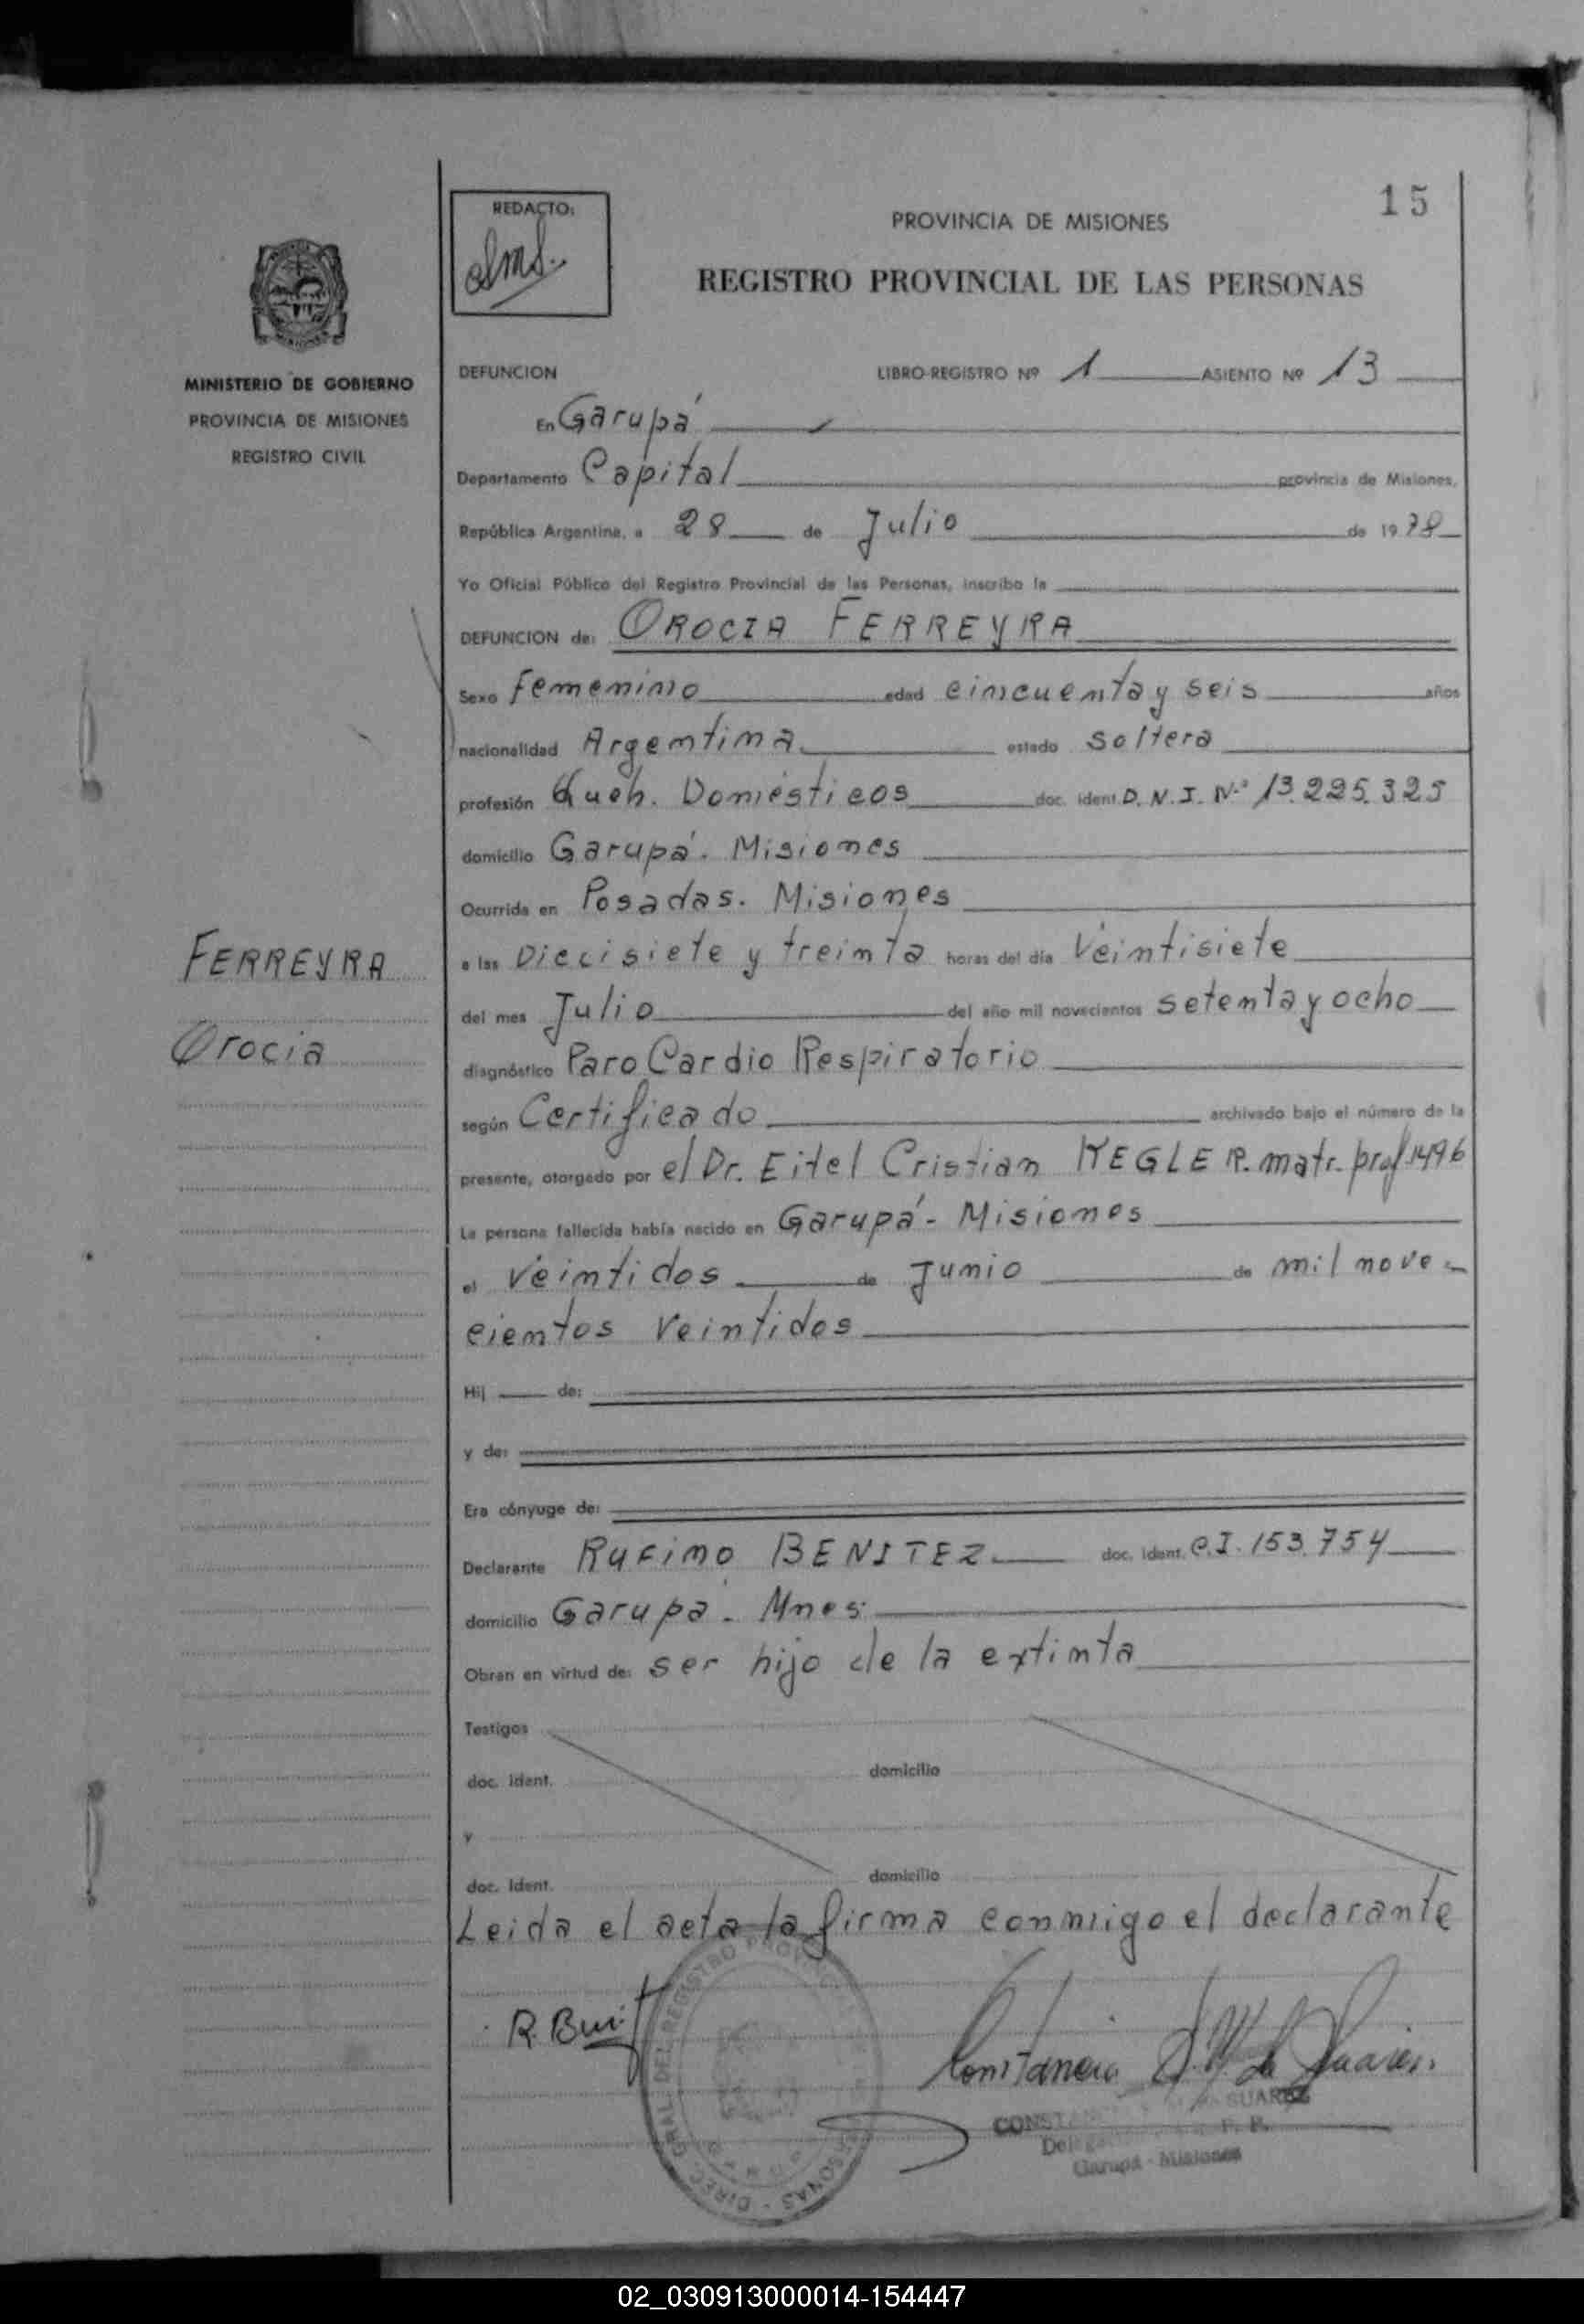 15
REDACTO:
PROVINCIA DE MISIONES
REGISTRO PROVINCIAL DE LAS PERSONAS
MINISTERIO DE GOBIERNO
PROVINCIA DE MISIONES
REGISTRO CIVIL
DEFUNCION LIBRO-REGISTRO Nº 1 ASIENTO Nº 13
En Garupá
Departamento Capital provincia de Misiones,
República Argentina, a 28 de Julio de 1978
Yo Oficial Público del Registro Provincial de las Personas, inscribo la
DEFUNCION de: OROCIA FERREYRA
Sexo Femenino edad cincuenta y seis años
nacionalidad Argentina estado soltera
profesión Queh. Domésticos doc. ident. D.N.I. Nº 13.225.325
domicilio Garupá. Misiones
Ocurrida en Posadas. Misiones
FERREYRA
Orocia
a las Diecisiete y treinta horas del día Veintisiete
del mes Julio del año mil novecientos setenta y ocho
diagnóstico Paro Cardio Respiratorio
según Certificado archivado bajo el número de la
presente, otorgado por el Dr. Eitel Cristian KEGLER. matr. prof. 1496
La persona fallecida había nacido en Garupá - Misiones
el Veintidos de Junio de mil nove-
cientos Veintidos
Hij de:
y de:
Era cónyuge de:
Declarante Rufino BENITEZ doc. ident. C.I. 153.754
domicilio Garupá. Mnes.
Obran en virtud de: ser hijo de la extinta
Testigos
doc. ident. domicilio
y
doc. ident. domicilio
Leida el acta la firma conmigo el declarante
Constancia de Suarez
SUAREZ
Garupá - Misiones
02_030913000014-154447